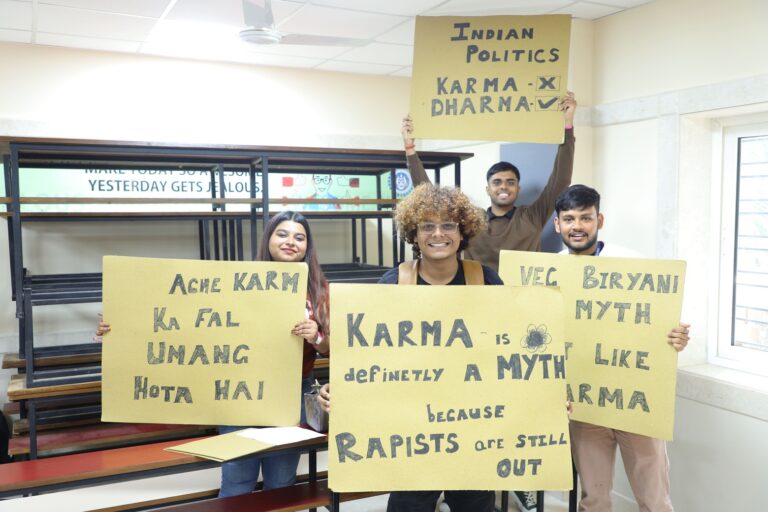 Indian
Politics
Karma - ☒
Dharma - ☑
YESTERDAY GETS JEALOUS.
Ache Karm
Ka Fal
Umang
Hota Hai
Karma - is
definetly a MYTH
because
RAPISTS are STILL
OUT
VEG BIRYANI
MYTH
LIKE